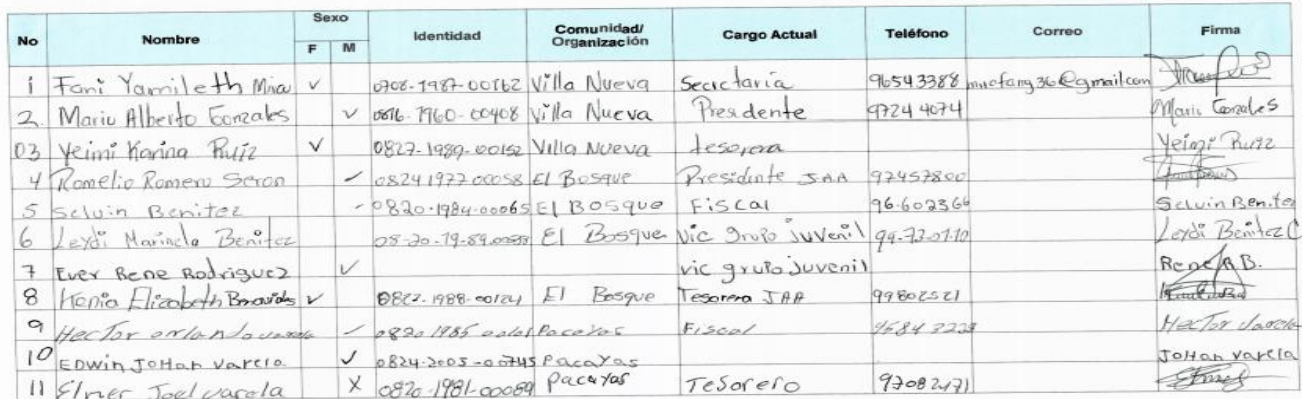 No Nombre Sexo F M Identidad Comunidad/ Organización Cargo Actual Teléfono Correo Firma
1 Fani Yamileth ✓ 0708-1987-00162 Villa Nueva Secretaria 96543388
2 Mario Alberto Gonzales ✓ 1960-00408 Villa Nueva Presidente 9724 4074 Mario Gonzales
03 Yeimi Karina Ruiz ✓ 0827-1989-00152 Villa Nueva tesorera Yeimi Ruiz
4 Romelio Romero Seron ✓ 0824 1977 00058 El Bosque Presidente JAA 97457800
5 Selvin Benitez 0820-1984-00065 El Bosque Fiscal 96-602366 Selvin Benitez
6 Leydi Mariela Benitez El Bosque Vic Grupo Juvenil Leydi Benitez C
7 Ever Rene Rodriguez ✓ vic grupo juvenil Rene B.
8 Kenia Elizabeth ✓ 0822-1988-00124 El Bosque Tesorera JAA 99802521
9 Hector orlando varela ✓ 0820 1985 Pacayas Fiscal Hector Varela
10 EDwin JoHan varela ✓ 0824-2005-00745 Pacayas JoHan varela
11 Elmer Joel varela X 0820-1981-00089 Pacayas Tesorero 97082471